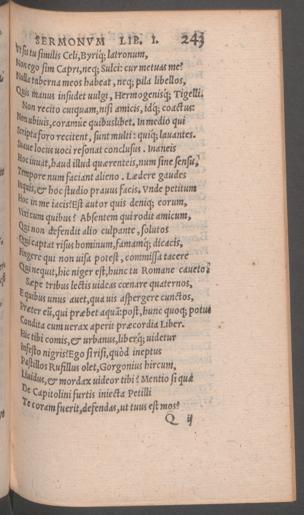 SERMONVM LIB. I. 243
Ut sis tu similis Celi, Byriq́; latronum,
Non ego sim Capri, neq; Sulci: cur metuas me?
Nulla taberna meos habeat, neq; pila libellos,
Quis manus insudet uulgi, Hermogenisq́; Tigelli.
Non recito cuiquam, nisi amicis, idq́; coactus:
Non ubiuis, coramue quibuslibet. In medio qui
Scripta foro recitent, sunt multi: quiq́; lauantes.
Suaue locus uoci resonat conclusus. Inaneis
Hoc iuuat, haud illud quærenteis, num sine sensu,
Tempore num faciant alieno. Lædere gaudes
Inquis, & hoc studio prauus facis. Vnde petitum
Hoc in me iacis? Est autor quis deniq; eorum,
Vixi cum quibus? Absentem qui rodit amicum,
Qui non defendit alio culpante, solutos
Qui captat risus hominum, famamq́; dicacis,
Fingere qui non uisa potest, commissa tacere
Qui nequit, hic niger est, hunc tu Romane caueto.
Sæpe tribus lectis uideas cœnare quaternos,
E quibus unus auet, qua uis aspergere cunctos,
Præter eū, qui præbet aquā: post, hunc quoq; potus
Condita cum uerax aperit præcordia Liber.
Hic tibi comis, & urbanus, liberq́; uidetur
Infesto nigris? Ego si risi, quòd ineptus
Pastillos Rufillus olet, Gorgonius hircum,
Liuidus, & mordax uideor tibi? Mentio si qua
De Capitolini furtis iniecta Petilli
Te coram fuerit, defendas, ut tuus est mos?
Q ij